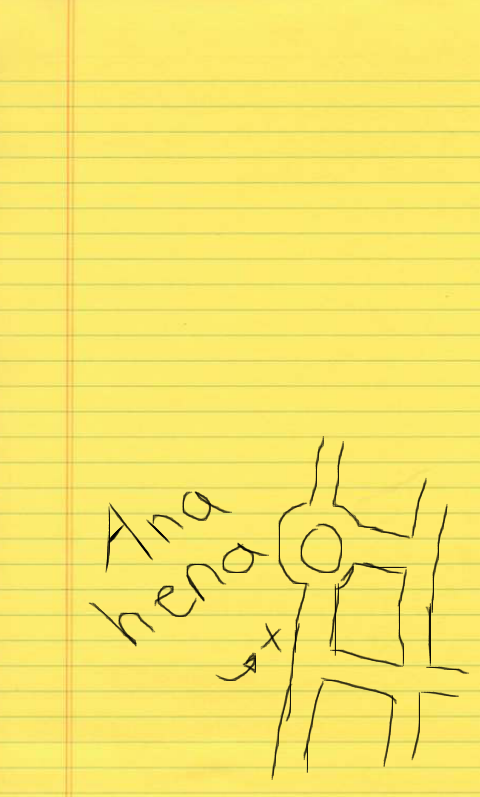 Ana
hena
X